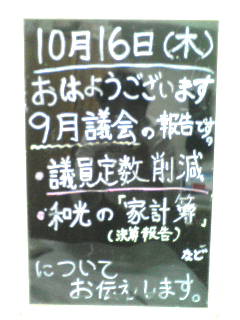 10月16日(木)
おはようございます
9月議会の報告です。
・議員定数削減
・和光の『家計簿』
(決算報告)
など
について
お伝えします。